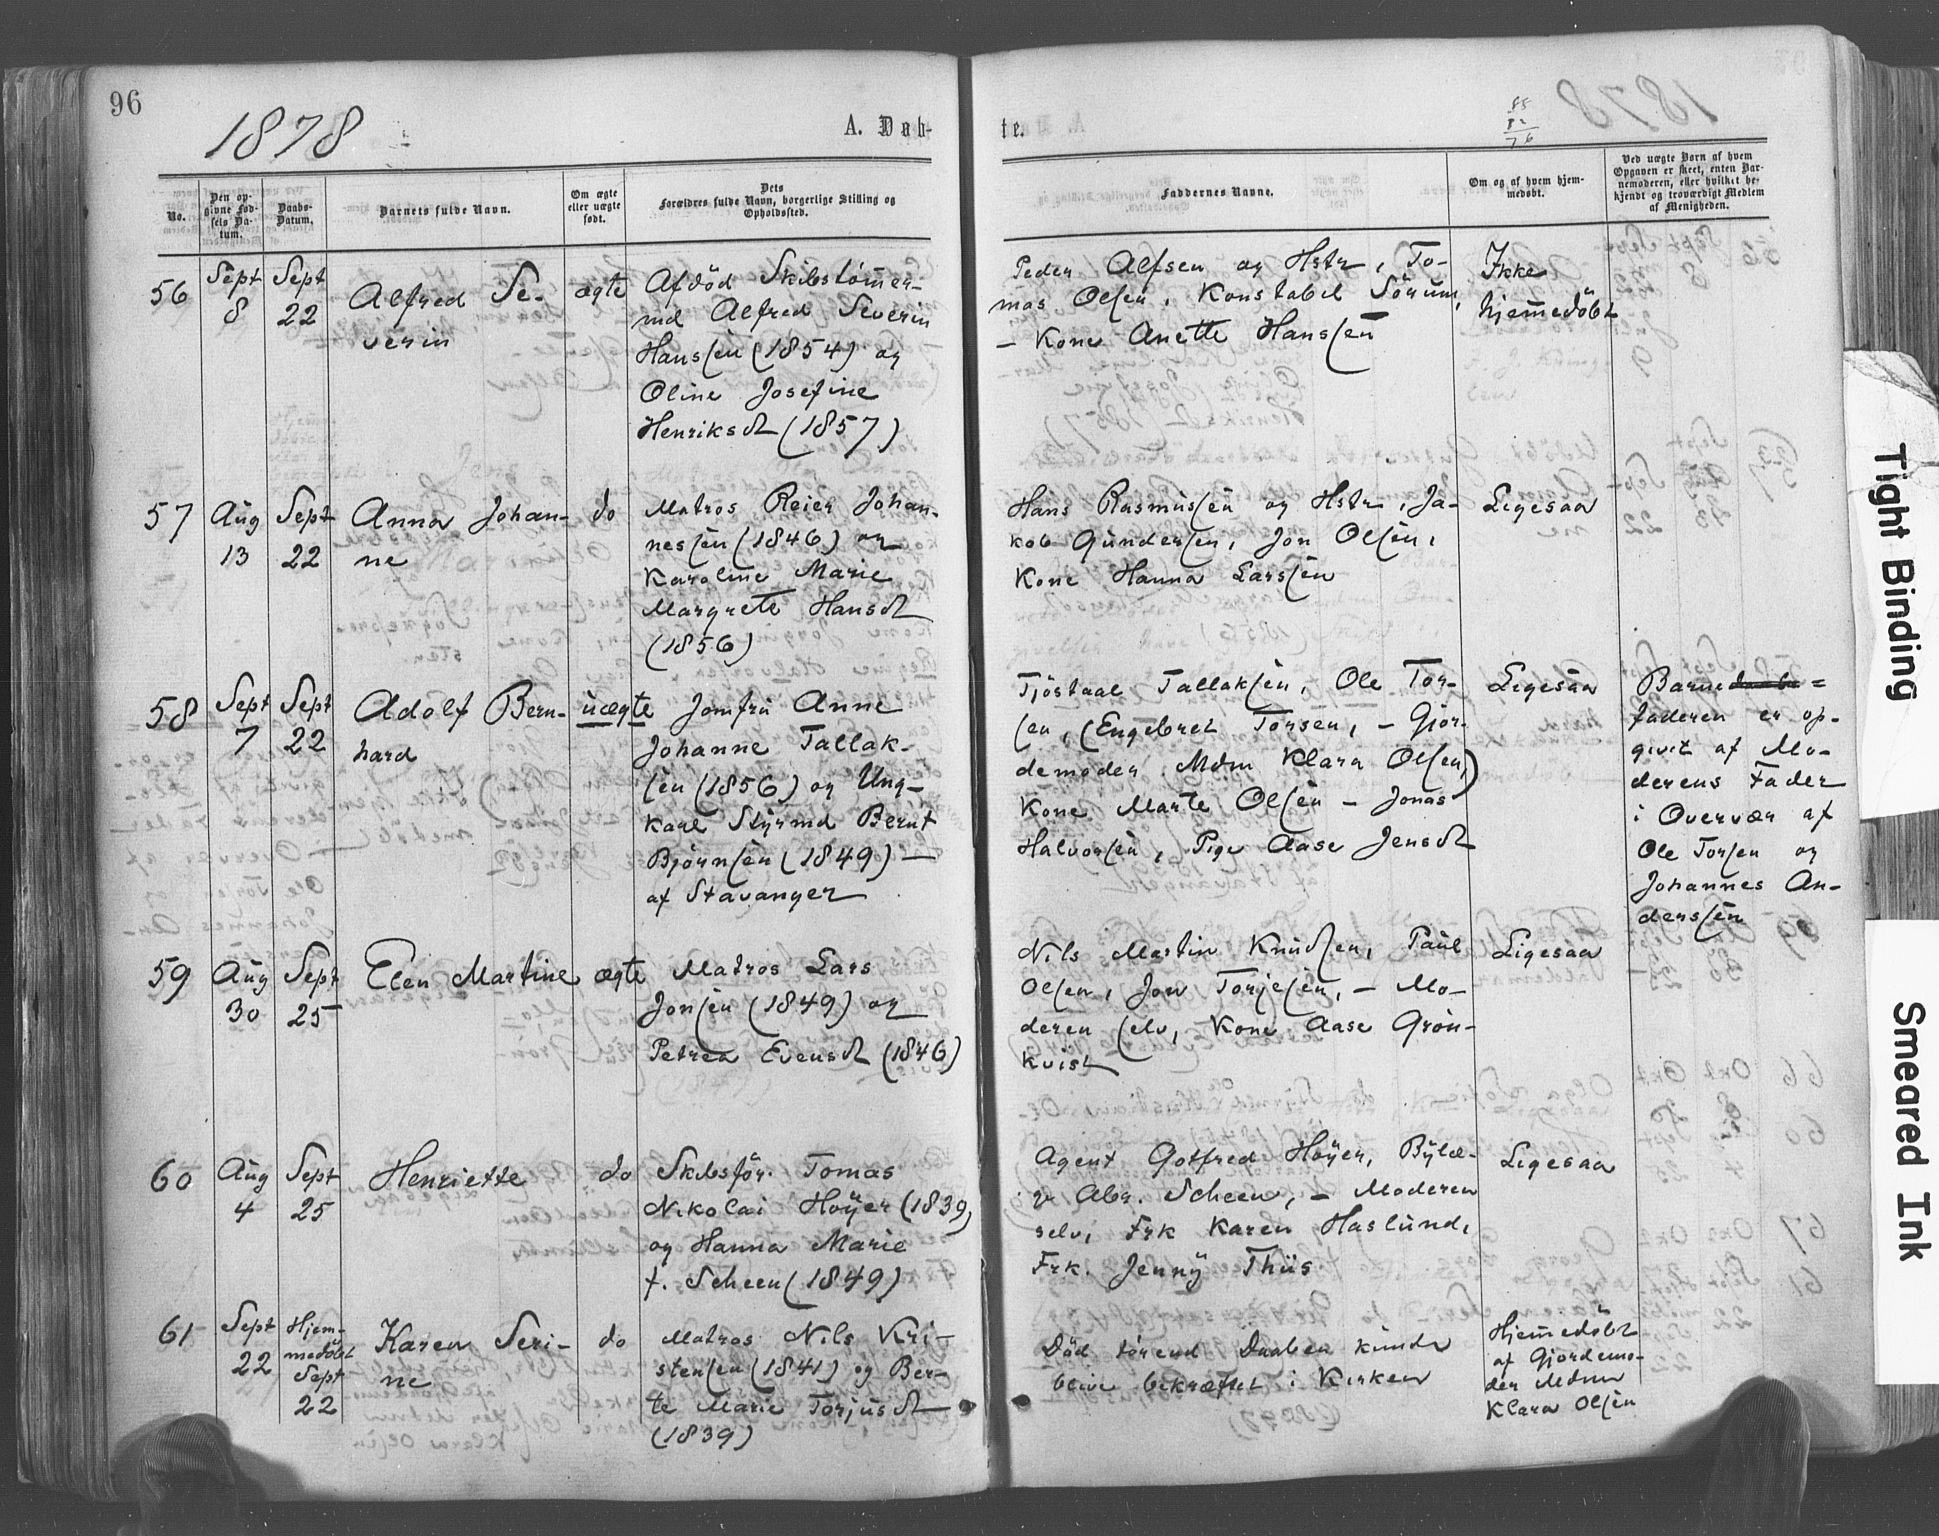 96
1878
A. Døb-
te.
1878
88
12
76
No.
Den op-
givne Fød-
sels Da-
tum.
Daabs-
Datum.
Barnets fulde Navn.
Om ægte
eller uægte
født.
Dets
Forældres fulde Navn, borgerlige Stilling og
Opholdssted.
Faddernes Navne.
Om og af hvem hjem-
medøbt.
Ved uægte Barn af hvem
Opgaven er skeet, enten Bar-
nemoderen, eller hvilket be-
kjendt og troværdigt Medlem
af Menigheden.
56
Sept
8
Sept
22
Alfred Se-
verin
ægte
Afdöd Skibstömer-
md Alfred Severin
Hanssen (1854) og
Oline Josefine
Henriksdt (1857)
Peder Alfsen og Hstr, To-
mas Olsen, Konstabel Sörum,
- Kone Anette Hanssen
Ikke
hjemedöbt
57
Aug
13
Sept
22
Anna Johan-
ne
do
Matros Reier Johan-
nessen (1846) og
Karoline Marie
Margrete Hansdt
(1856)
Hans Rasmussen og Hstr, Ja-
kob Gundersen, Jon Olsen,
Kone Hanna Larssen
Ligesaa
58
Sept
7
Sept
22
Adolf Bern-
hard
uægte
Jomfru Anne
Johanne Tallak-
sen (1856) og Ung-
karl Styrmd Bernt
Bjørnsen (1849) -
af Stavanger
Tjöstaal Tallaksen, Ole Tor-
sen, (Engebret Torsen, - Gjor-
demoder Mdm Klara Olsen,)
Kone Marte Olsen - Jonas
Halvorsen, Pige Aase Jensdt
Ligesaa
Barne =
faderen er op-
givet af Mo-
derens Fader
i Overvær af
Ole Torsen og
Johannes An-
derssen
59
Aug
30
Sept
25
Elen Martine
ægte
Matros Lars
Jonsen (1849) og
Petrea Evensdt (1846)
Nils Martin Knudsen, Paul
Olsen, Jon Torjesen, - Mo-
deren selv, Kone Aase Grön-
kvist
Ligesaa
60
Aug
4
Sept
25
Henriette
do
Skibsför. Tomas
Nikolai Höyer (1839)
og Hanna Marie
f. Scheen (1849)
Agent Gotfred Höyer, Bylæ-
ge Abr. Scheen, - Moderen
selv, Frk Karen Haslund,
Frk. Jenny Thiis
Ligesaa
61
Sept
22
Hjem-
medöbt
Sept
22
Karen Seri-
ne
do
Matros Nils Kri-
stensen (1841) og Ber-
te Marie Torjusdt
(1839)
Död förend Daaben kunde
blive bekræftet i Kirken
Hjemedöbt
af Gjordemo-
der Mdm
Klara Olsen
Tight Binding
Smeared Ink